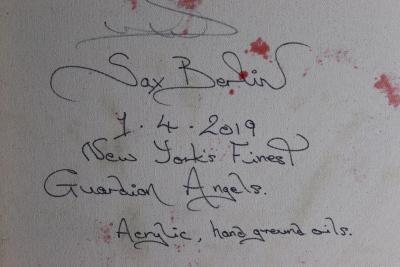 Sax Berlin
1.4.2019
New York's Finest
Guardian Angels.
Acrylic, hand ground oils.